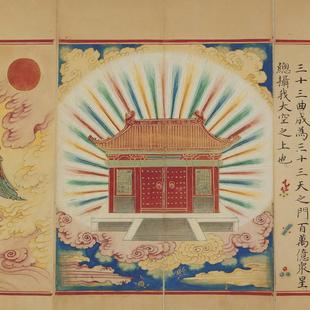 三十三曲成為三十三天之門百萬億衆星
總攝我太空之上也